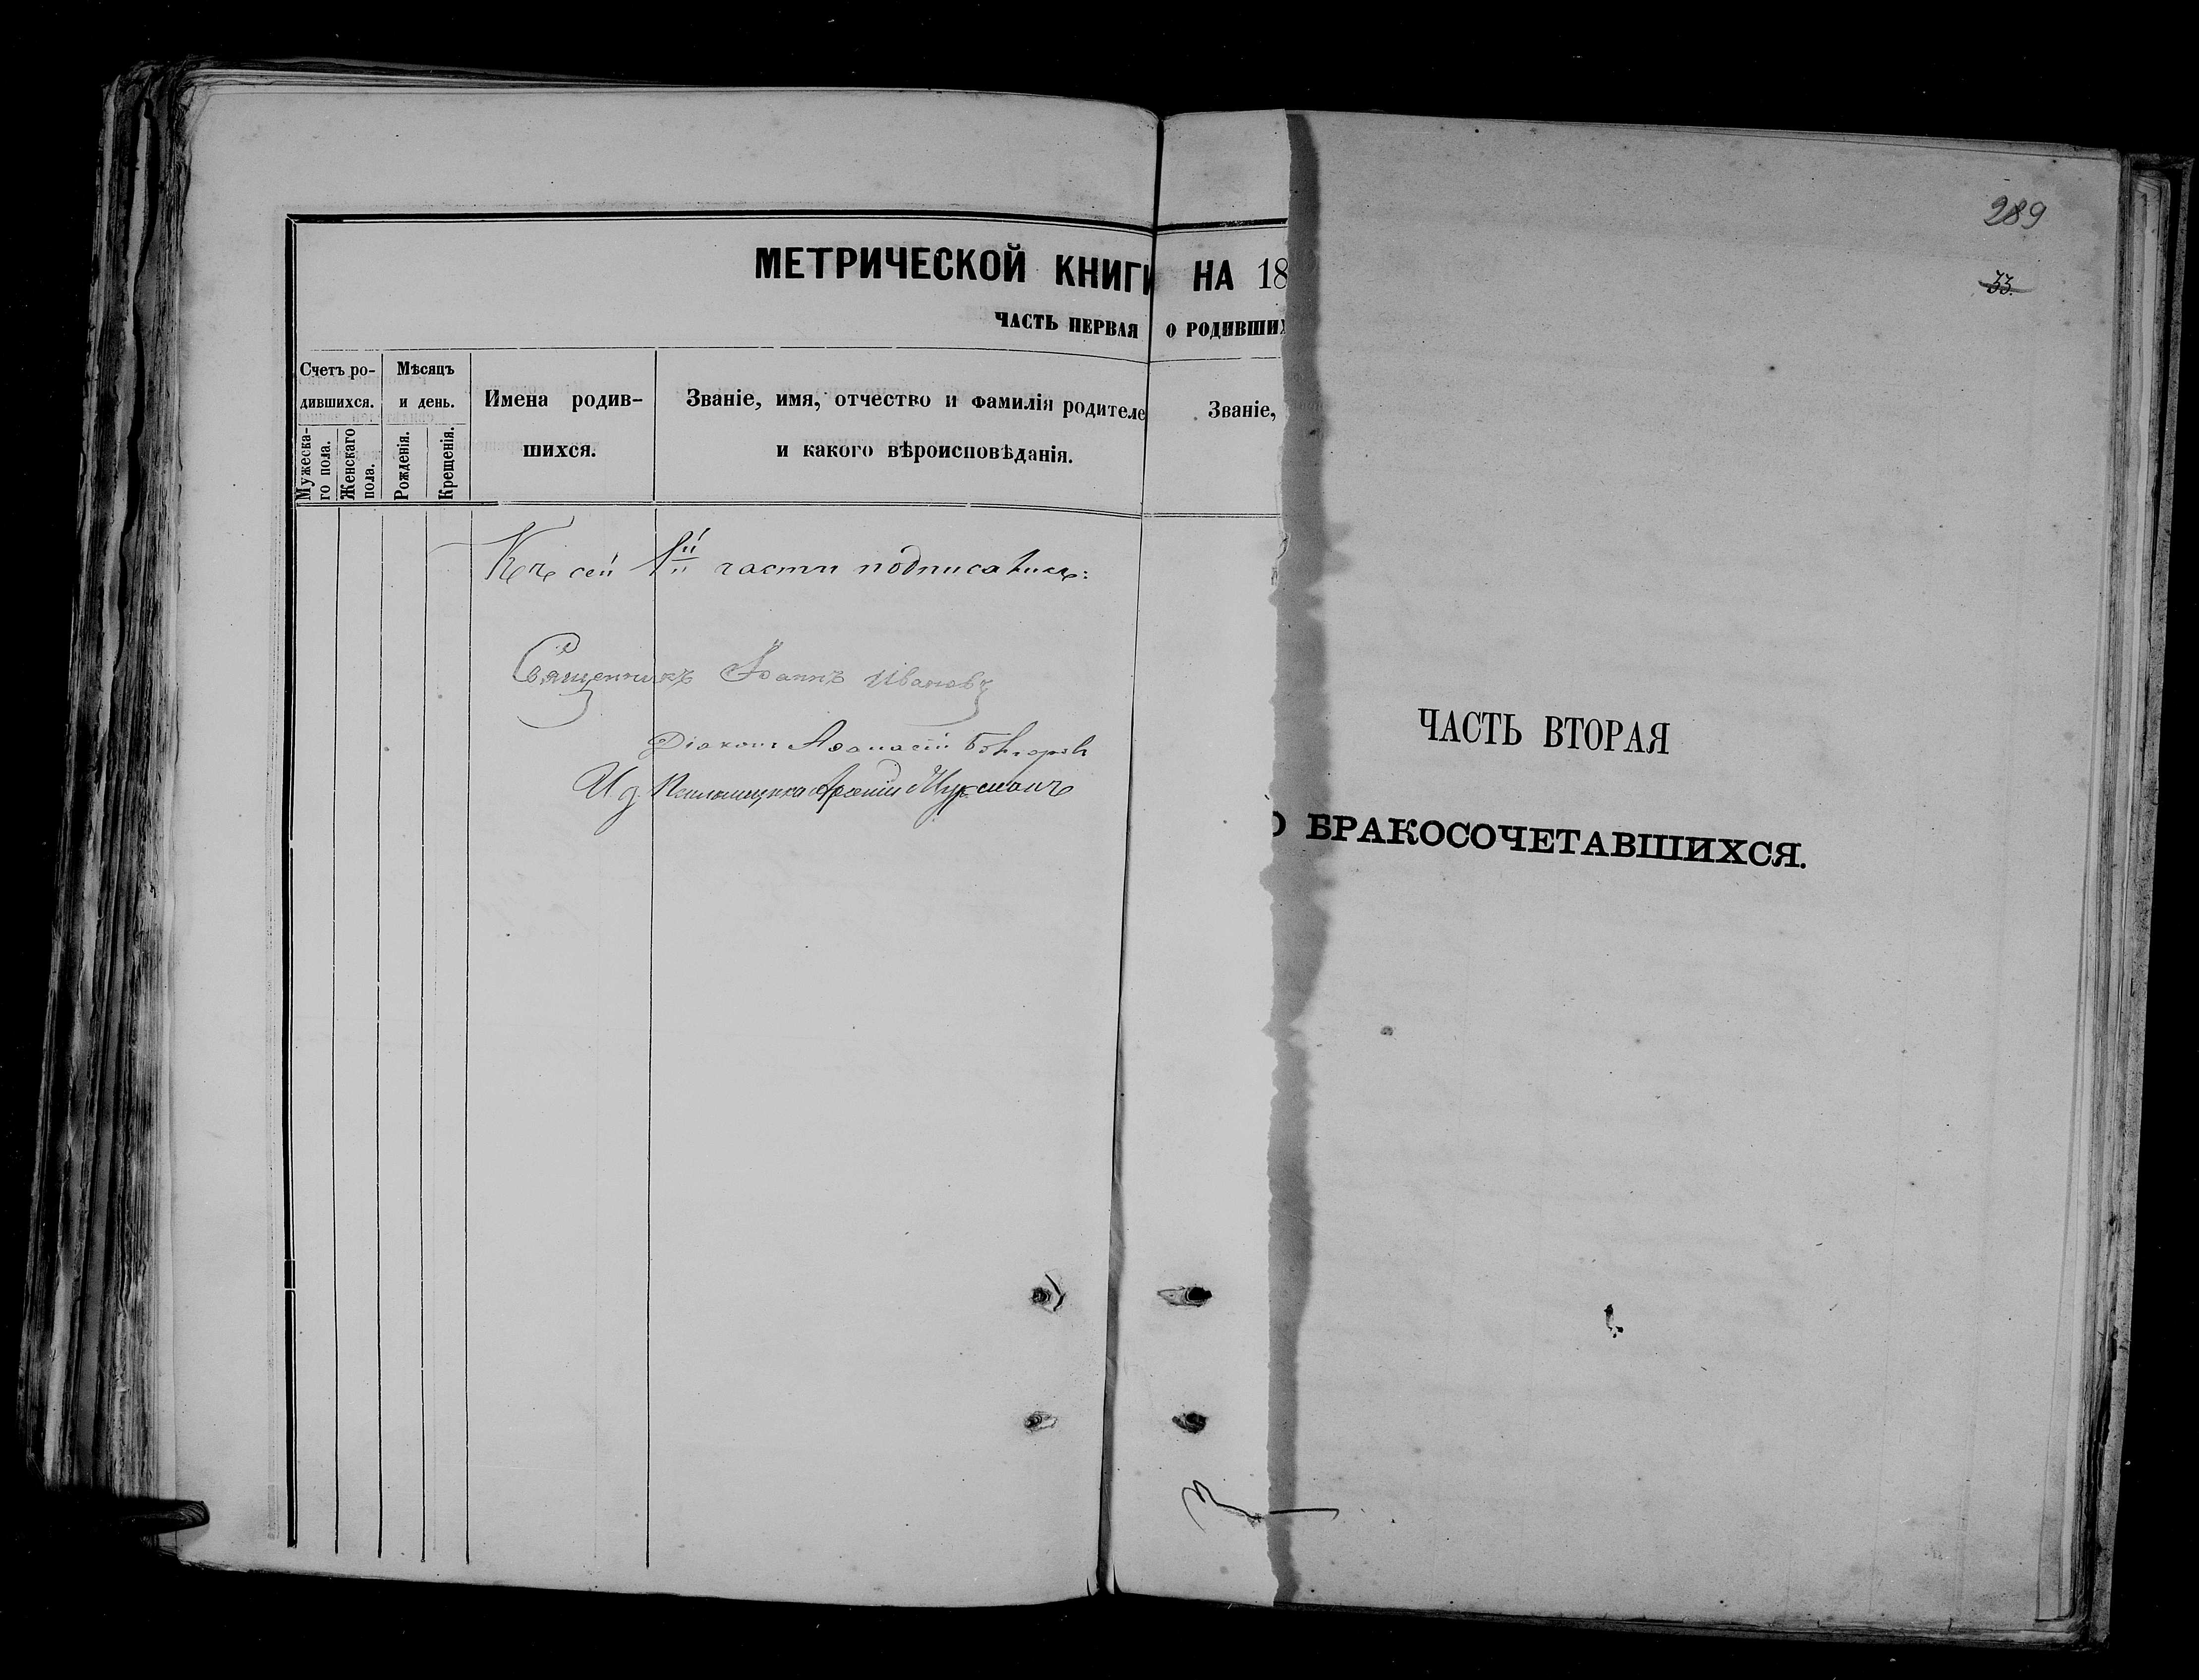 МЕТРИЧЕСКОЙ КНИГИ НА 18
ЧАСТЬ ПЕРВАЯ О РОДИВШИХ
Счетъ ро-
дившихся.
Мужеска-
го пола.
Женскаго
пола.
Мѣсяцъ
и день.
Рожденія.
Крещенія.
Имена родив-
шихся.
Званіе, имя, отчество и фамилія родителе
и какого вѣроисповѣданія.
Званіе,
Къ сей 1й части подписались:
Священникъ Іоаннъ Ивановъ
Діаконъ Аѳанасій
И д Псаломщика
289
33.
ЧАСТЬ ВТОРАЯ
О БРАКОСОЧЕТАВШИХСЯ.